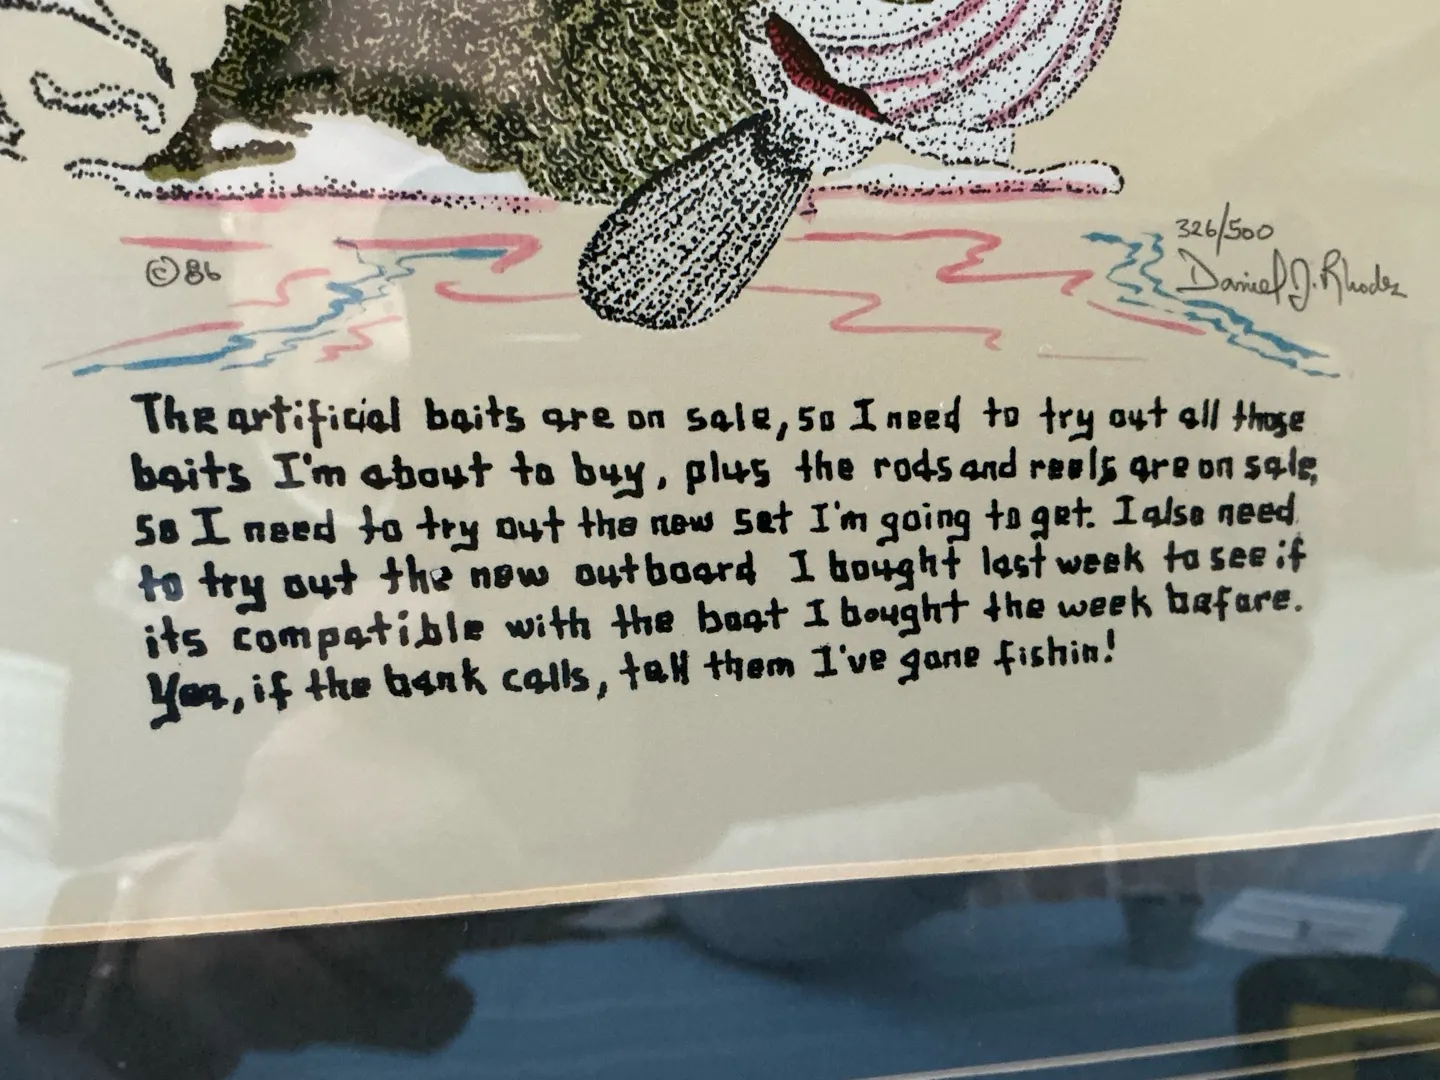 326/500
© 86
Daniel J. Rhodes
The artificial baits are on sale, so I need to try out all those
baits I'm about to buy, plus the rods and reels are on sale,
so I need to try out the new set I'm going to get. I also need
to try out the new outboard I bought last week to see if
its compatible with the boat I bought the week before.
Yea, if the bank calls, tell them I've gone fishin!